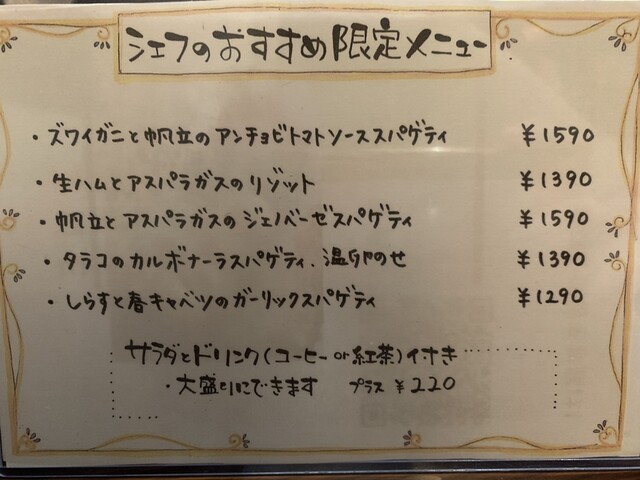 シェフのおすすめ限定メニュー
・ズワイガニと帆立のアンチョビトマトソーススパゲティ ¥1590
・生ハムとアスパラガスのリゾット ¥1390
・帆立とアスパラガスのジェノベーゼスパゲティ ¥1590
・タラコのカルボナーラスパゲティ、温卵のせ ¥1390
・しらすと春キャベツのガーリックスパゲティ ¥1290
サラダとドリンク(コーヒー or 紅茶)付き
・大盛りにできます プラス ¥220